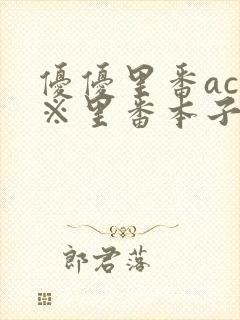 優優里番ac
※里番本子
郎君落